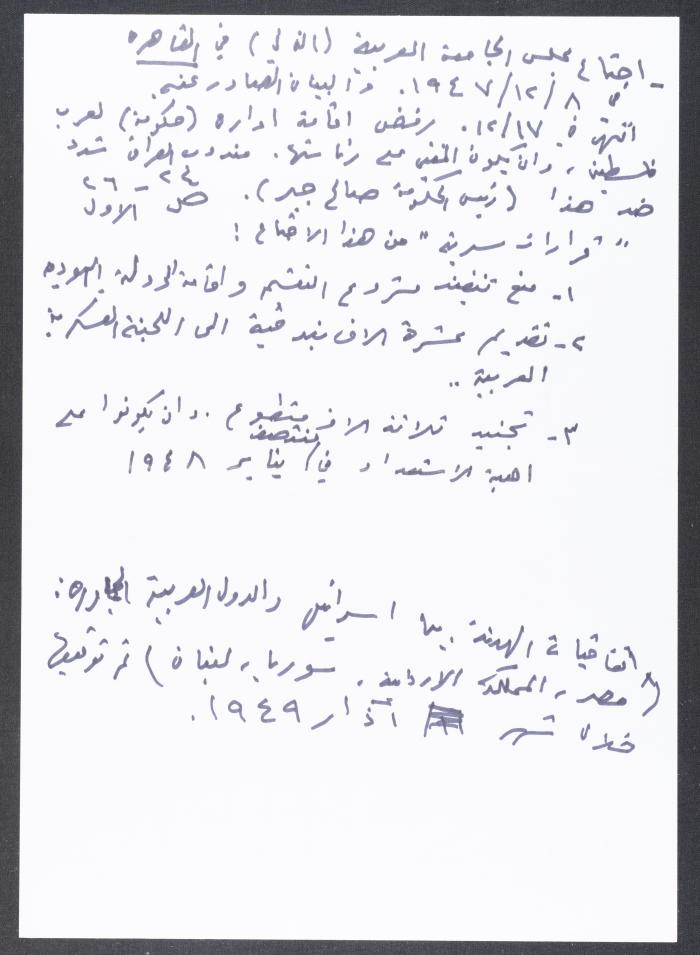 - اجتماع مجلس الجامعة العربية (الثاني) في القاهرة
في ٨/١٢/١٩٤٧. والبيان الصادر عنه
انتهى في ١٢/١٧. رفض اقامة اداره (حكومة) لعرب
فلسطين، وان يكون المفتي على رئاستها. مندوب العراق شدد
ضد هذا (رئيس الحكومة صالح جبر). ص ٢٤ - ٢٦
الاول
"قرارات سرية" من هذا الاجتماع:
١- منع تنفيذ مشروع التقسيم واقامة الدولة اليهودية
٢- تقديم عشرة الاف بندقية الى اللجنة العسكرية
العربية ..
٣- تجنيد ثلاثة الاف متطوع. وان يكونوا على
اهبة الاستعداد في منتصف يناير ١٩٤٨
اتفاقيات الهدنة بين اسرائيل والدول العربية المجاورة:
(مصر، المملكة الاردنية، سوريا، لبنان) تم توقيعها
خلال شهر آذار ١٩٤٩.